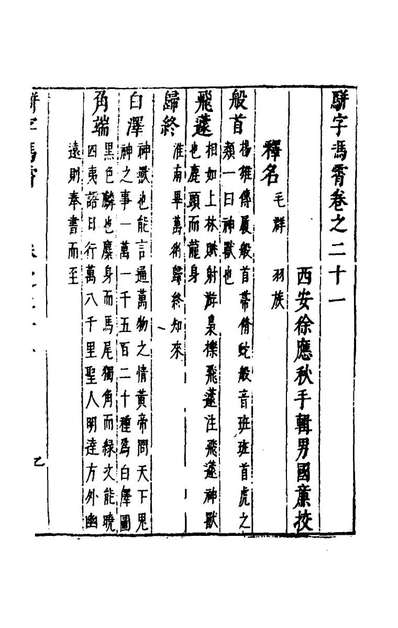 駢字馮霄卷之二十一
西安徐應秋手輯男國廉挍
釋名
毛羣 羽族
般首
楊雄傳屨般首帶脩蛇般音班班首虎之
類一曰神獸也
飛遽
相如上林賦射游梟櫟飛遽注飛遽神獸
也鹿頭而龍身
歸終
淮南畢萬術歸終知來
白澤
神獸也能言通萬物之情黃帝問天下鬼
神之事一萬一千五百二十種爲白澤圖
角端
黑色麟也麋身而馬尾獨角而綠文能曉
四夷語日行萬八千里聖人明達方外幽
遠則奉書而至